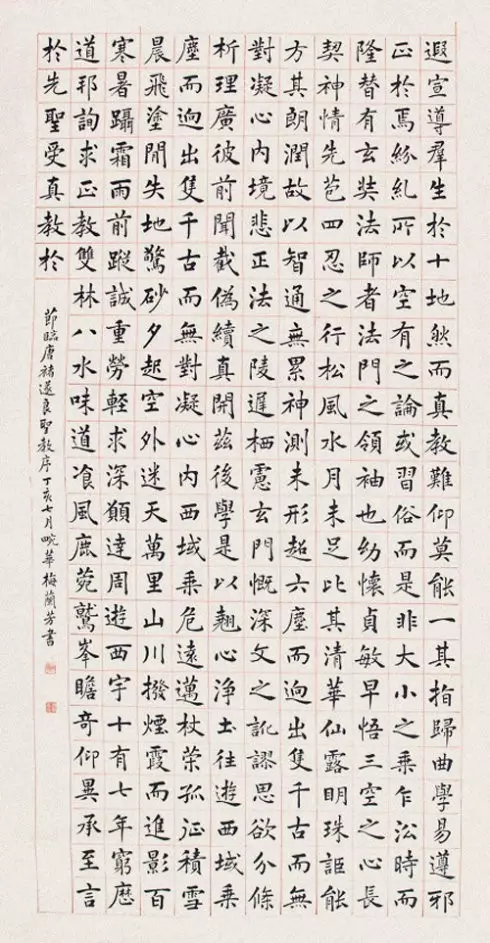 遐宣導羣生於十地然而真教難仰莫能一其指歸曲學易遵邪
正於焉紛糺所以空有之論或習俗而是非大小之乘乍沿時而
隆替有玄奘法師者法門之領袖也幼懷貞敏早悟三空之心長
契神情先苞四忍之行松風水月未足比其清華仙露明珠詎能
方其朗潤故以智通無累神測未形超六塵而迥出隻千古而無
對凝心內境悲正法之陵遲栖慮玄門慨深文之訛謬思欲分條
析理廣彼前聞截偽續真開茲後學是以翹心淨土往遊西域乗
塵而迥出隻千古而無對凝心內西域乗危遠邁杖策孤征積雪
晨飛塗閒失地驚砂夕起空外迷天萬里山川撥煙霞而進影百
寒暑躡霜雨前蹤誠重勞輕求深願達周遊西宇十有七年窮歷
道邦詢求正教雙林八水味道飡風鹿菀鷲峯瞻奇仰異承至言
於先聖受真教於
節臨唐褚遂良聖教序丁亥七月畹華梅蘭芳書